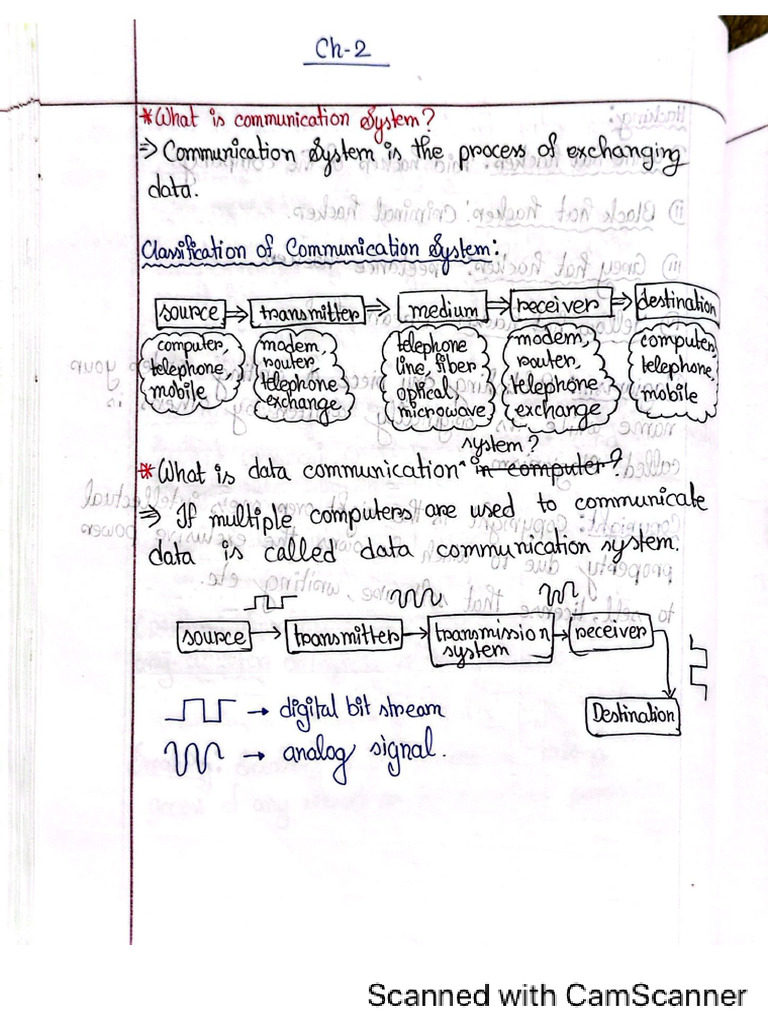 Ch-2
*What is communication System?
⇒ Communication System is the process of exchanging
data.
Classification of Communication System:
source ⇒ transmitter ⇒ medium ⇒ receiver ⇒ destination
computer, telephone, mobile
modem, router, telephone exchange
telephone line, fiber optical, microwave
modem, router, telephone exchange
computer, telephone, mobile
system?
*What is data communication ^ in computer?
⇒ If multiple computers are used to communicate
data is called data communication system.
source → transmitter → transmission system → receiver
Destination
→ digital bit stream
→ analog signal.
Scanned with CamScanner